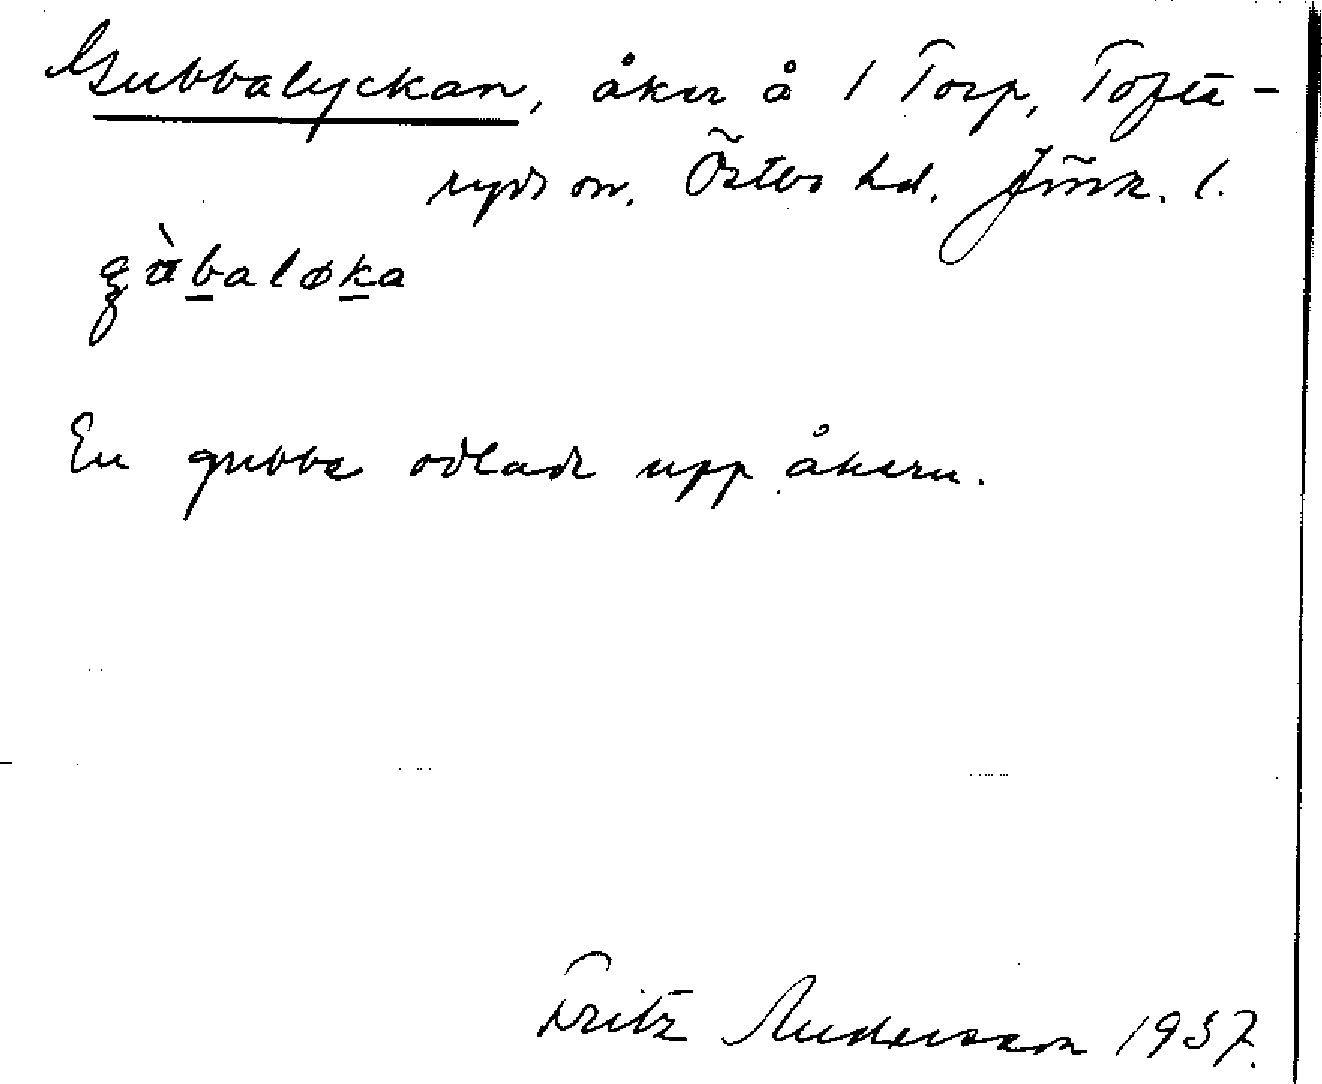 Gubbalyckan, åker å 1 Torp, Tofta-
ryds sn. Östbo hd. Jönk. l.
gàbaløka
En gubbe odlade upp åkern.
Fritz Andersson 1937.